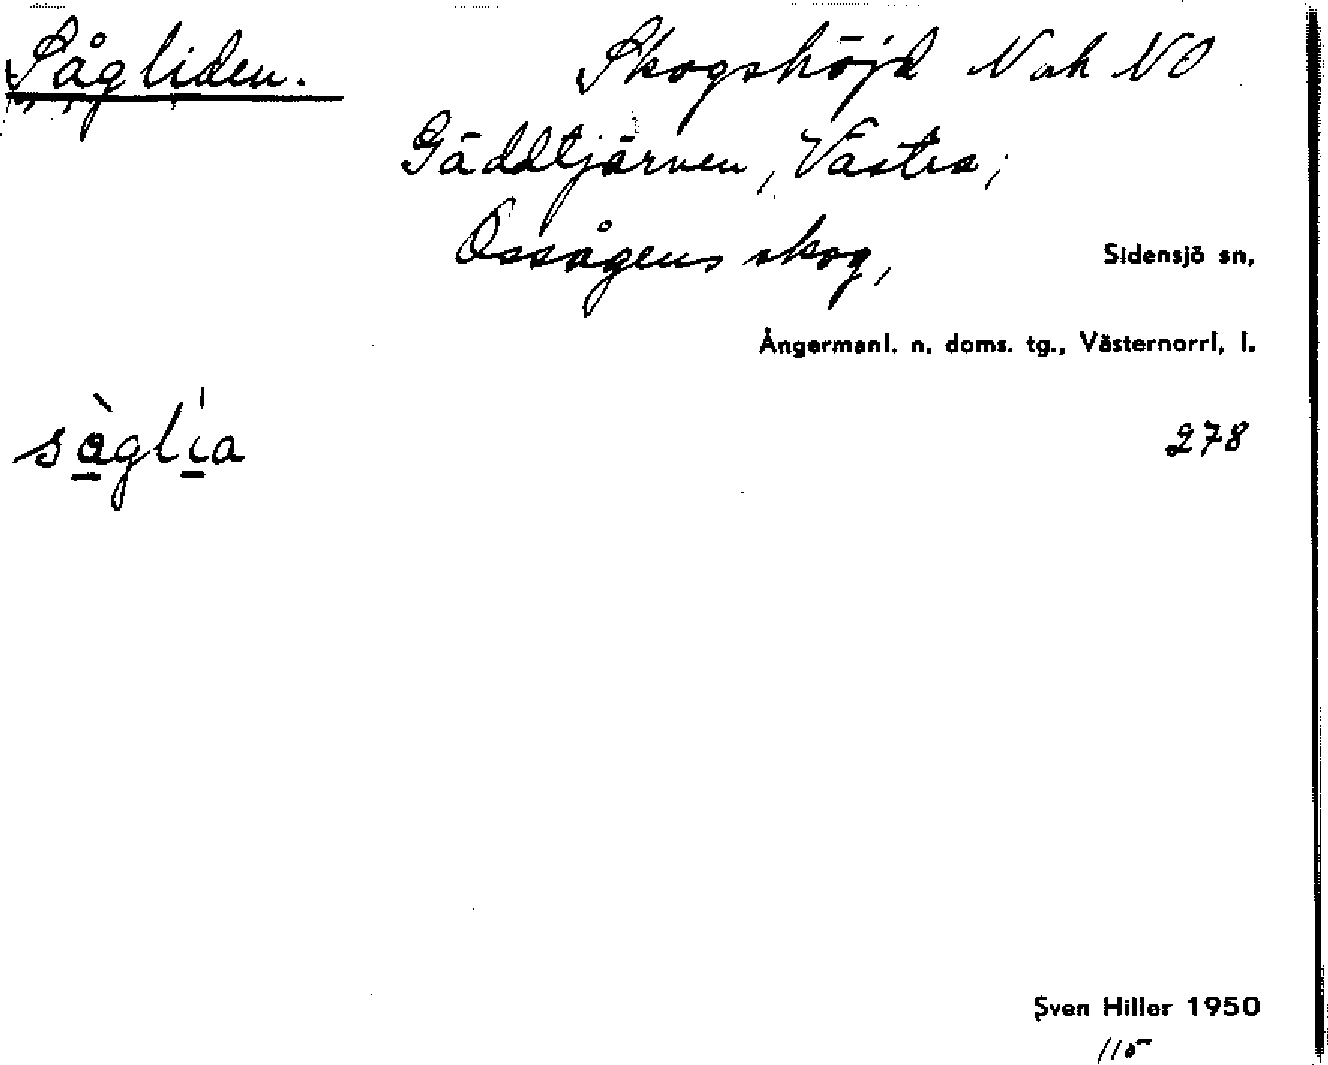 Sågliden. Skogshöjd N och NO
Gäddtjärnen, Västra,
Ossågens skog, Sidensjö sn,
Ångermanl. n. doms. tg., Västernorrl. l.
sàglia 278
Sven Hiller 1950
115